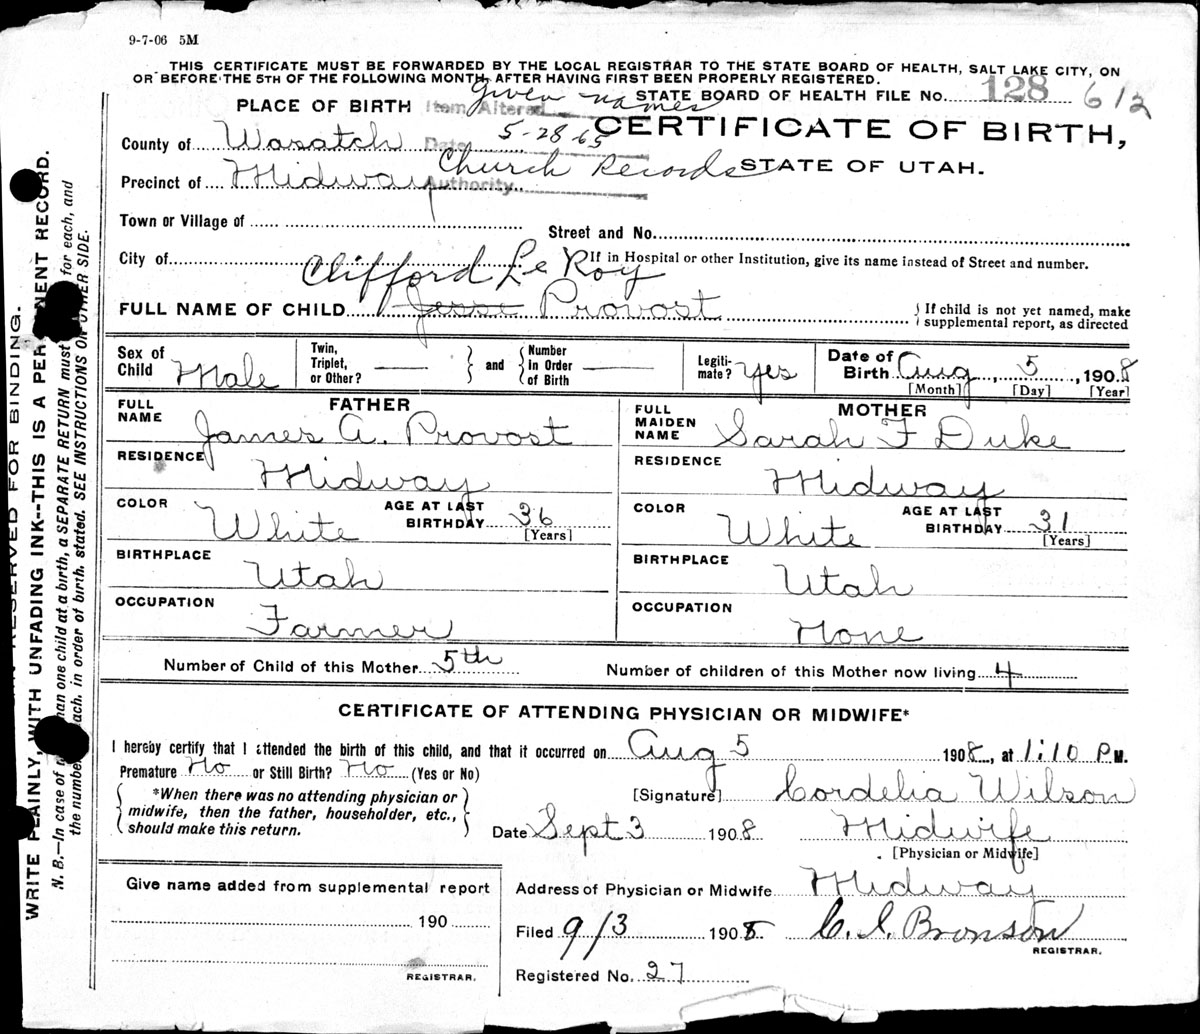 9-7-06 5M
THIS CERTIFICATE MUST BE FORWARDED BY THE LOCAL REGISTRAR TO THE STATE BOARD OF HEALTH, SALT LAKE CITY, ON
OR BEFORE THE 5TH OF THE FOLLOWING MONTH, AFTER HAVING FIRST BEEN PROPERLY REGISTERED.
STATE BOARD OF HEALTH FILE No. 128 612
PLACE OF BIRTH Item Altered Given names
CERTIFICATE OF BIRTH,
County of Wasatch Date 5-28-65
STATE OF UTAH.
Precinct of Midway Authority Church Records
Town or Village of
Street and No.
City of
If in Hospital or other Institution, give its name instead of Street and number.
Clifford Le Roy
FULL NAME OF CHILD Jesse Provost
If child is not yet named, make
supplemental report, as directed
Sex of Child Male Twin, Triplet, or Other? and Number in Order of Birth Legiti- mate? Yes Date of Birth Aug 5, 1908
[Month] [Day] [Year]
FATHER
FULL NAME James A. Provost
RESIDENCE Midway
COLOR White AGE AT LAST BIRTHDAY 36 [Years]
BIRTHPLACE Utah
OCCUPATION Farmer
MOTHER
FULL MAIDEN NAME Sarah F Duke
RESIDENCE Midway
COLOR White AGE AT LAST BIRTHDAY 31 [Years]
BIRTHPLACE Utah
OCCUPATION None
Number of Child of this Mother 5th Number of children of this Mother now living 4
CERTIFICATE OF ATTENDING PHYSICIAN OR MIDWIFE*
I hereby certify that I attended the birth of this child, and that it occurred on Aug 5 1908, at 1:10 P M.
Premature No or Still Birth? No (Yes or No)
*When there was no attending physician or
midwife, then the father, householder, etc.,
should make this return.
[Signature] Cordelia Wilson
Date Sept 3 1908 Midwife
[Physician or Midwife]
Give name added from supplemental report
190
REGISTRAR.
Address of Physician or Midwife Midway
Filed 9/3 1908 C. I. Bronson
REGISTRAR.
Registered No. 27
RESERVED FOR BINDING.
WRITE PLAINLY, WITH UNFADING INK--THIS IS A PERMANENT RECORD.
N. B.—In case of than one child at a birth, a SEPARATE RETURN must for each, and
the number each, in order of birth, stated. SEE INSTRUCTIONS ON OTHER SIDE.